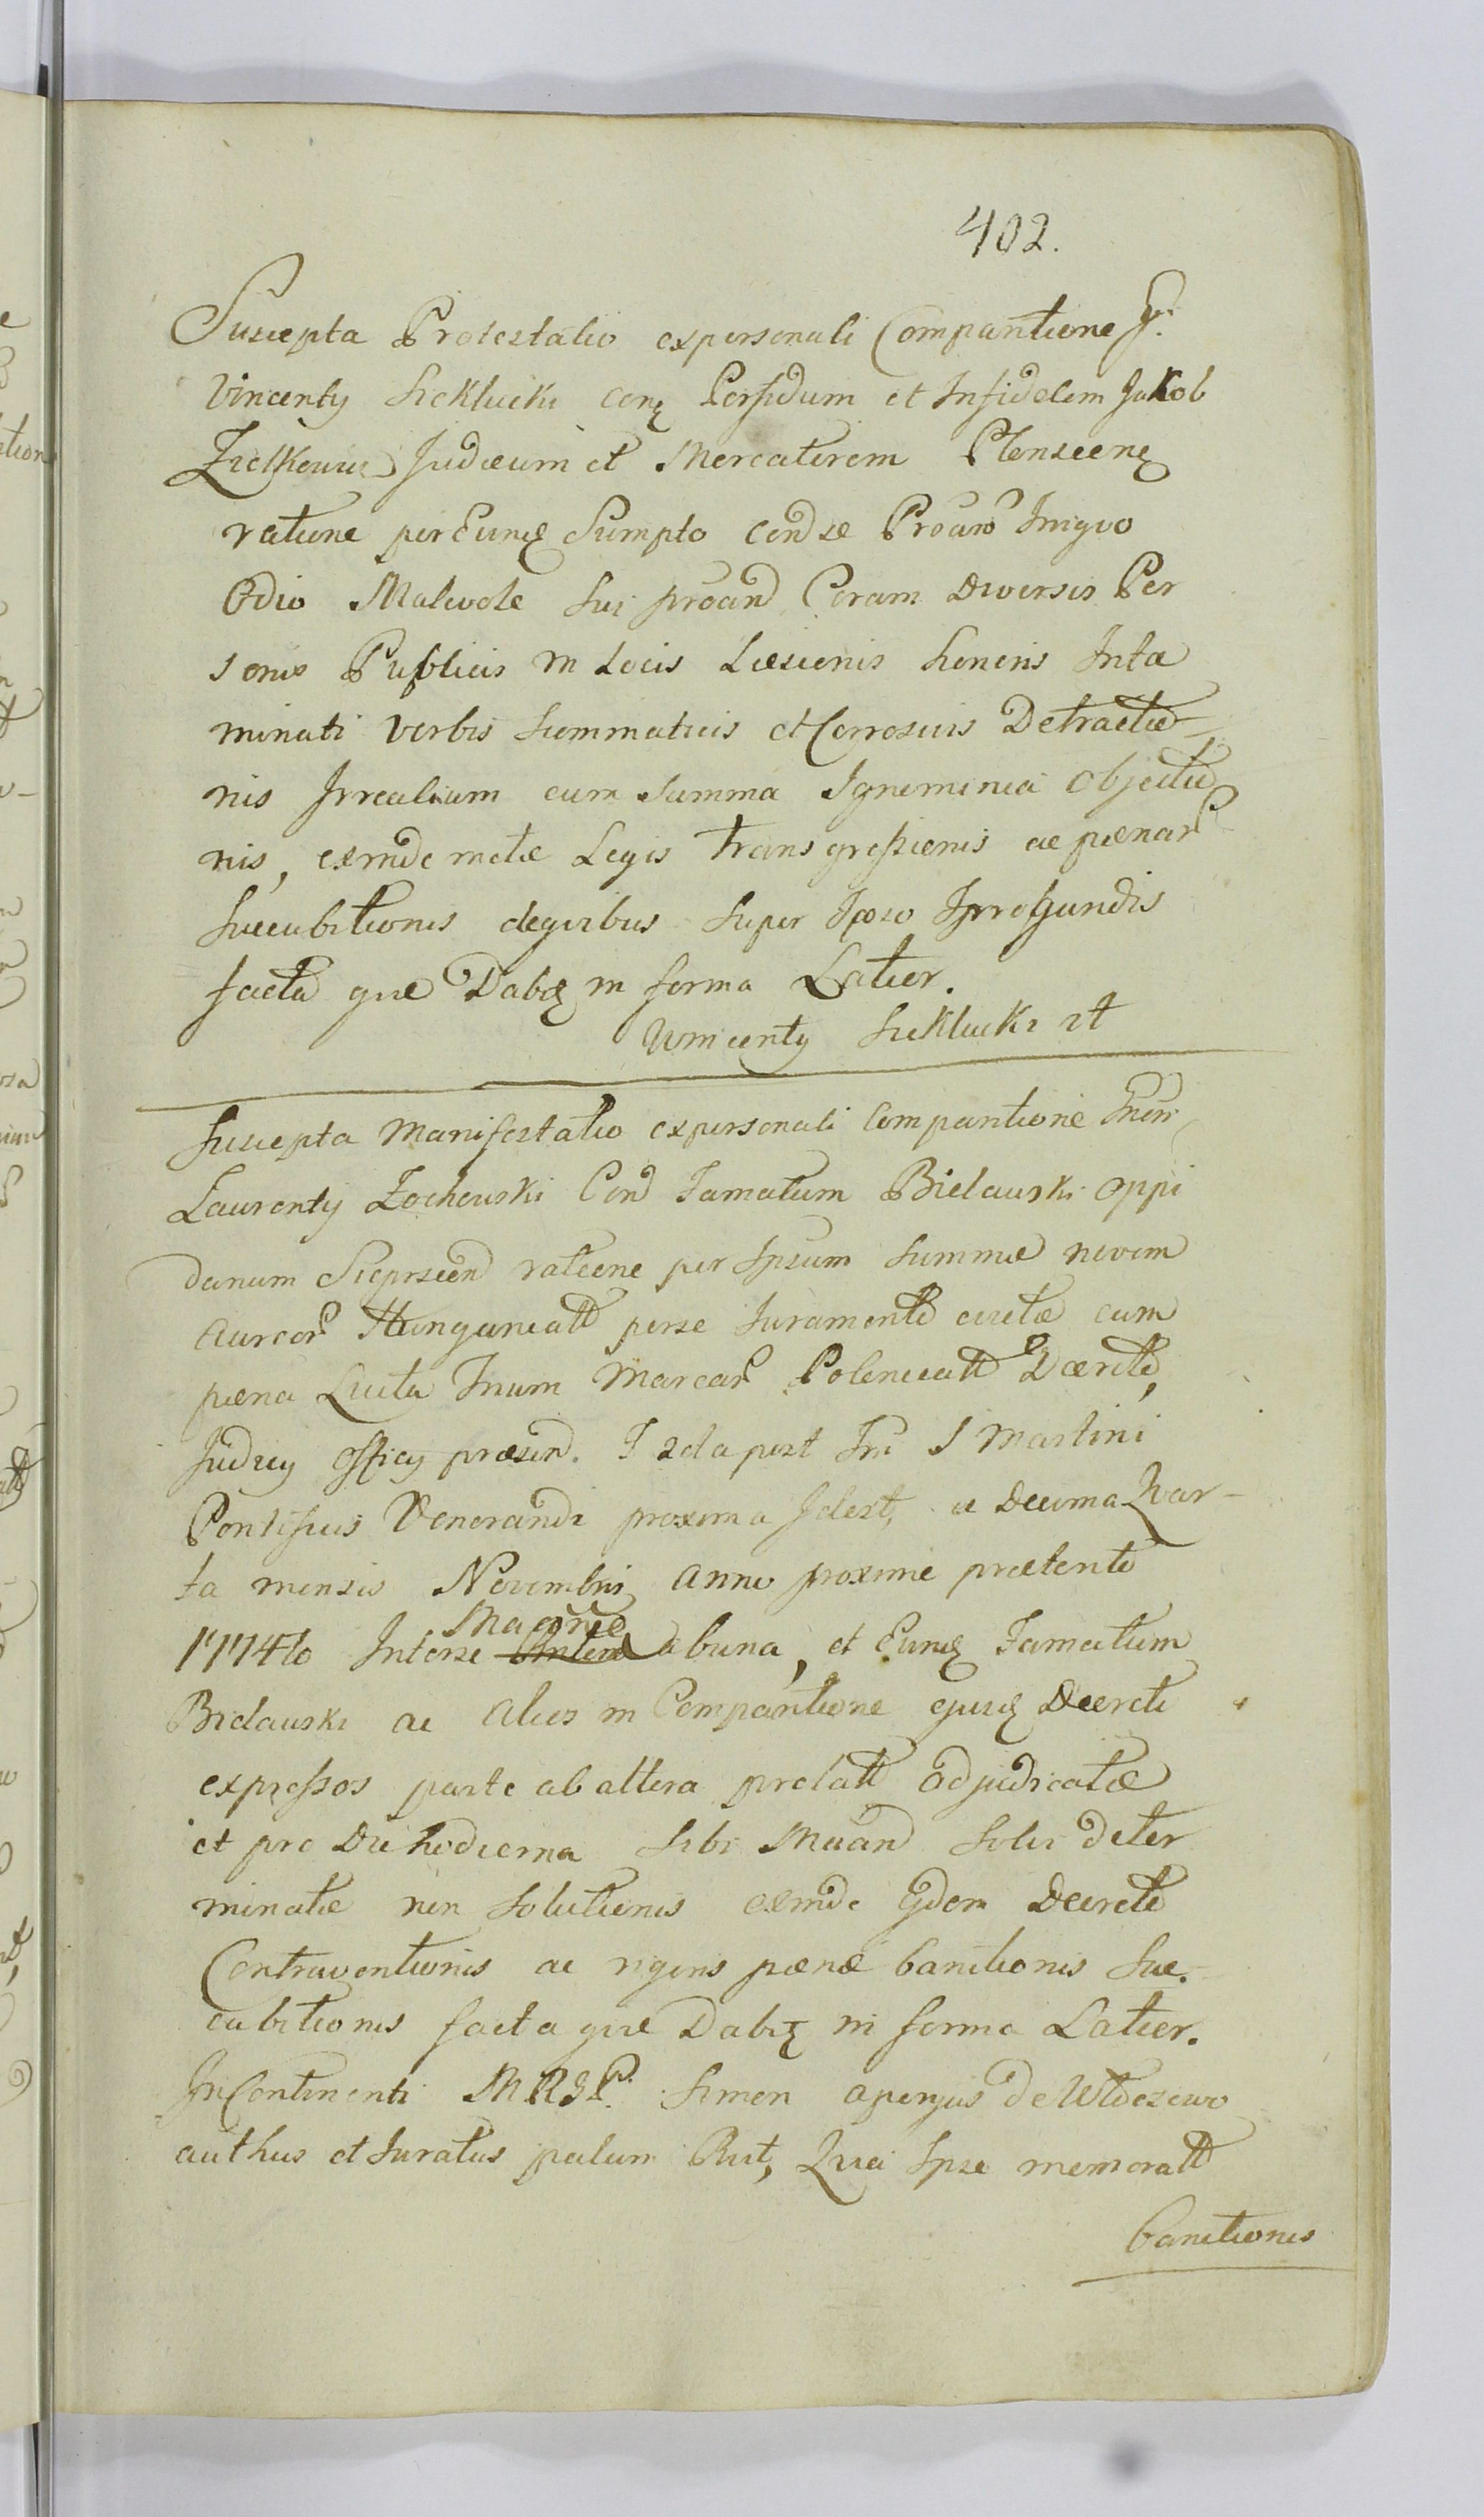 402.
Suscepta Protestatio ex personali Comparitione G.
Vincenty Sieklucki conq Perfidum et Infidelem Jakob
Judæum et Mercatorem Plonscenq
ratione per Eunq Sumpto cond se Proan Iniquo
Odio Malevole sui proand Coram Diversis Per
sonis Publicis in Locis Læsionis honoris Inta
minati verbis Scommaticis et Corrosivis Detractio-
nis Irrealium cum Summa Ignominia Objectio
nis, exinde metæ Legis transgressionis ac pænar
Succubitionis Legiribus super Ipso Irrogandis
facta quæ Dabq in forma Latior.
Wincenty Sieklucki rt
Suscepta Manifestatio ex personali Comparitione Gnen
Laurenty Zochowski Cond Famatum Bielawski Oppi
danum Sieprscen ratione per Ipsum Summæ novem
Aureor Hungaricatt per se Juramento evictæ cum
pæna Luita Trium Marcar Polonicatt Decreto
Judicy Officy præsen. F 2da post Fm S Martini
Pontificis Venerandi proxima Idest, a Decima Quar-
ta mensis Novembris Anno proxime præterito
1774to Inter se Magnæ abuna, et Eunq Famatum
Bielawski ac Alios in Comparitione ejusq Decreti
expressos parte ab altera prolatt adjudicatæ
et pro Die hodierna sibi Mand solvi deter
minatæ non Solutionis exinde Ejdem Decreto
Contraventionis ac rigoris pænæ banitionis Suc-
cubitionis facta quæ Dabiq in forma Latior.
In Continenti MRGL. Simon de
authus et Juratus palam Rit, Quia Ipse memoratt
banitionis